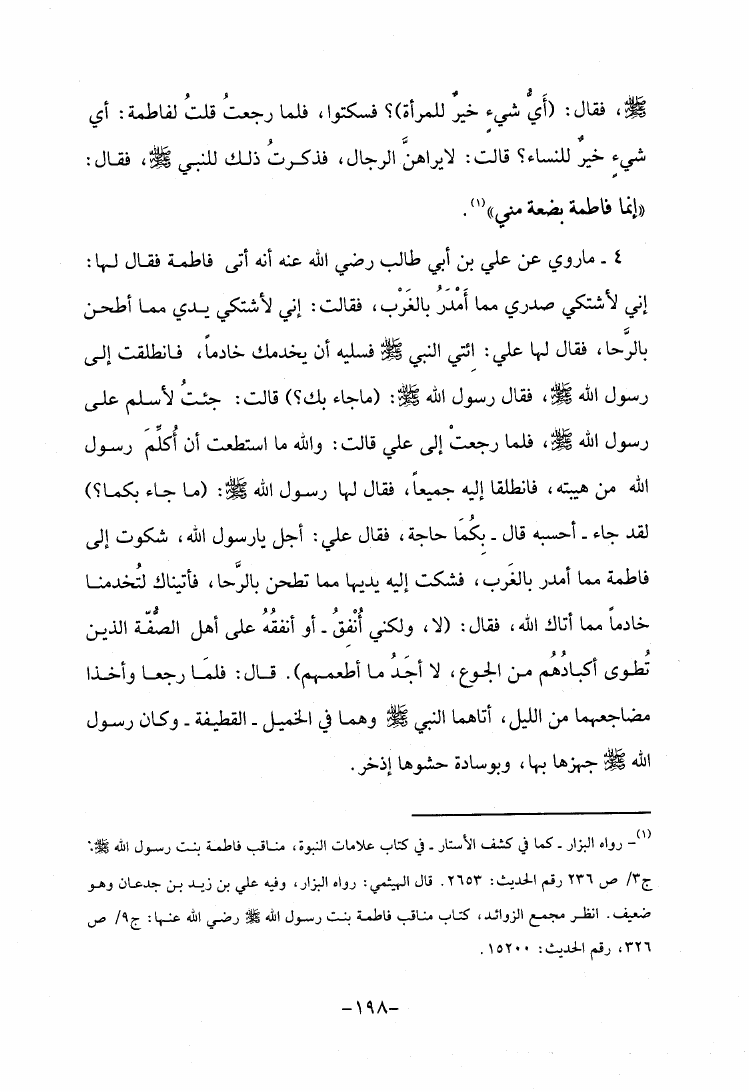 ﷺ، فقال: (أَيُّ شيءٍ خيرٌ للمرأة)؟ فسكتوا، فلما رجعتُ قلتُ لفاطمة: أي
شيءٍ خيرٌ للنساء؟ قالت: لايراهنَّ الرجال، فذكرتُ ذلك للنبي ﷺ، فقال:
«إنما فاطمة بضعة مني»(١).
٤ ـ ماروي عن علي بن أبي طالب رضي الله عنه أنه أتى فاطمة فقال لها:
إني لأشتكي صدري مما أَمْدَرُ بالغَرْب، فقالت: إني لأشتكي يدي مما أطحن
بالرَّحا، فقال لها علي: ائتي النبي ﷺ فسليه أن يخدمك خادماً، فانطلقت إلى
رسول الله ﷺ، فقال رسول الله ﷺ: (ماجاء بك؟) قالت: جئتُ لأسلم على
رسول الله ﷺ، فلما رجعتْ إلى علي قالت: والله ما استطعت أن أُكلِّمَ رسول
الله من هيبته، فانطلقا إليه جميعاً، فقال لها رسول الله ﷺ: (ما جاء بكما؟)
لقد جاء ـ أحسبه قال ـ بِكُمَا حاجة، فقال علي: أجل يارسول الله، شكوت إلى
فاطمة مما أمدر بالغَرب، فشكت إليه يديها مما تطحن بالرَّحا، فأتيناك لتُخدمنا
خادماً مما أتاك الله، فقال: (لا، ولكني أُنْفِقُ ـ أو أنفقُهُ على أهل الصُّفّة الذين
تُطوى أكبادُهُم من الجوع، لا أجدُ ما أطعمهم). قال: فلمَا رجعا وأخذا
مضاجعهما من الليل، أتاهما النبي ﷺ وهما في الخميل ـ القطيفة ـ وكان رسول
الله ﷺ جهزها بها، وبوسادة حشوها إذخر.
(١)ـ رواه البزار ـ كما في كشف الأستار ـ في كتاب علامات النبوة، مناقب فاطمة بنت رسول الله ﷺ:
ج٣/ ص ٢٣٦ رقم الحديث: ٢٦٥٣. قال الهيثمي: رواه البزار، وفيه علي بن زيد بن جدعان وهو
ضعيف. انظر مجمع الزوائد، كتاب مناقب فاطمة بنت رسول الله ﷺ رضي الله عنها: ج٩/ ص
٣٢٦، رقم الحديث: ١٥٢٠٠.
-١٩٨-